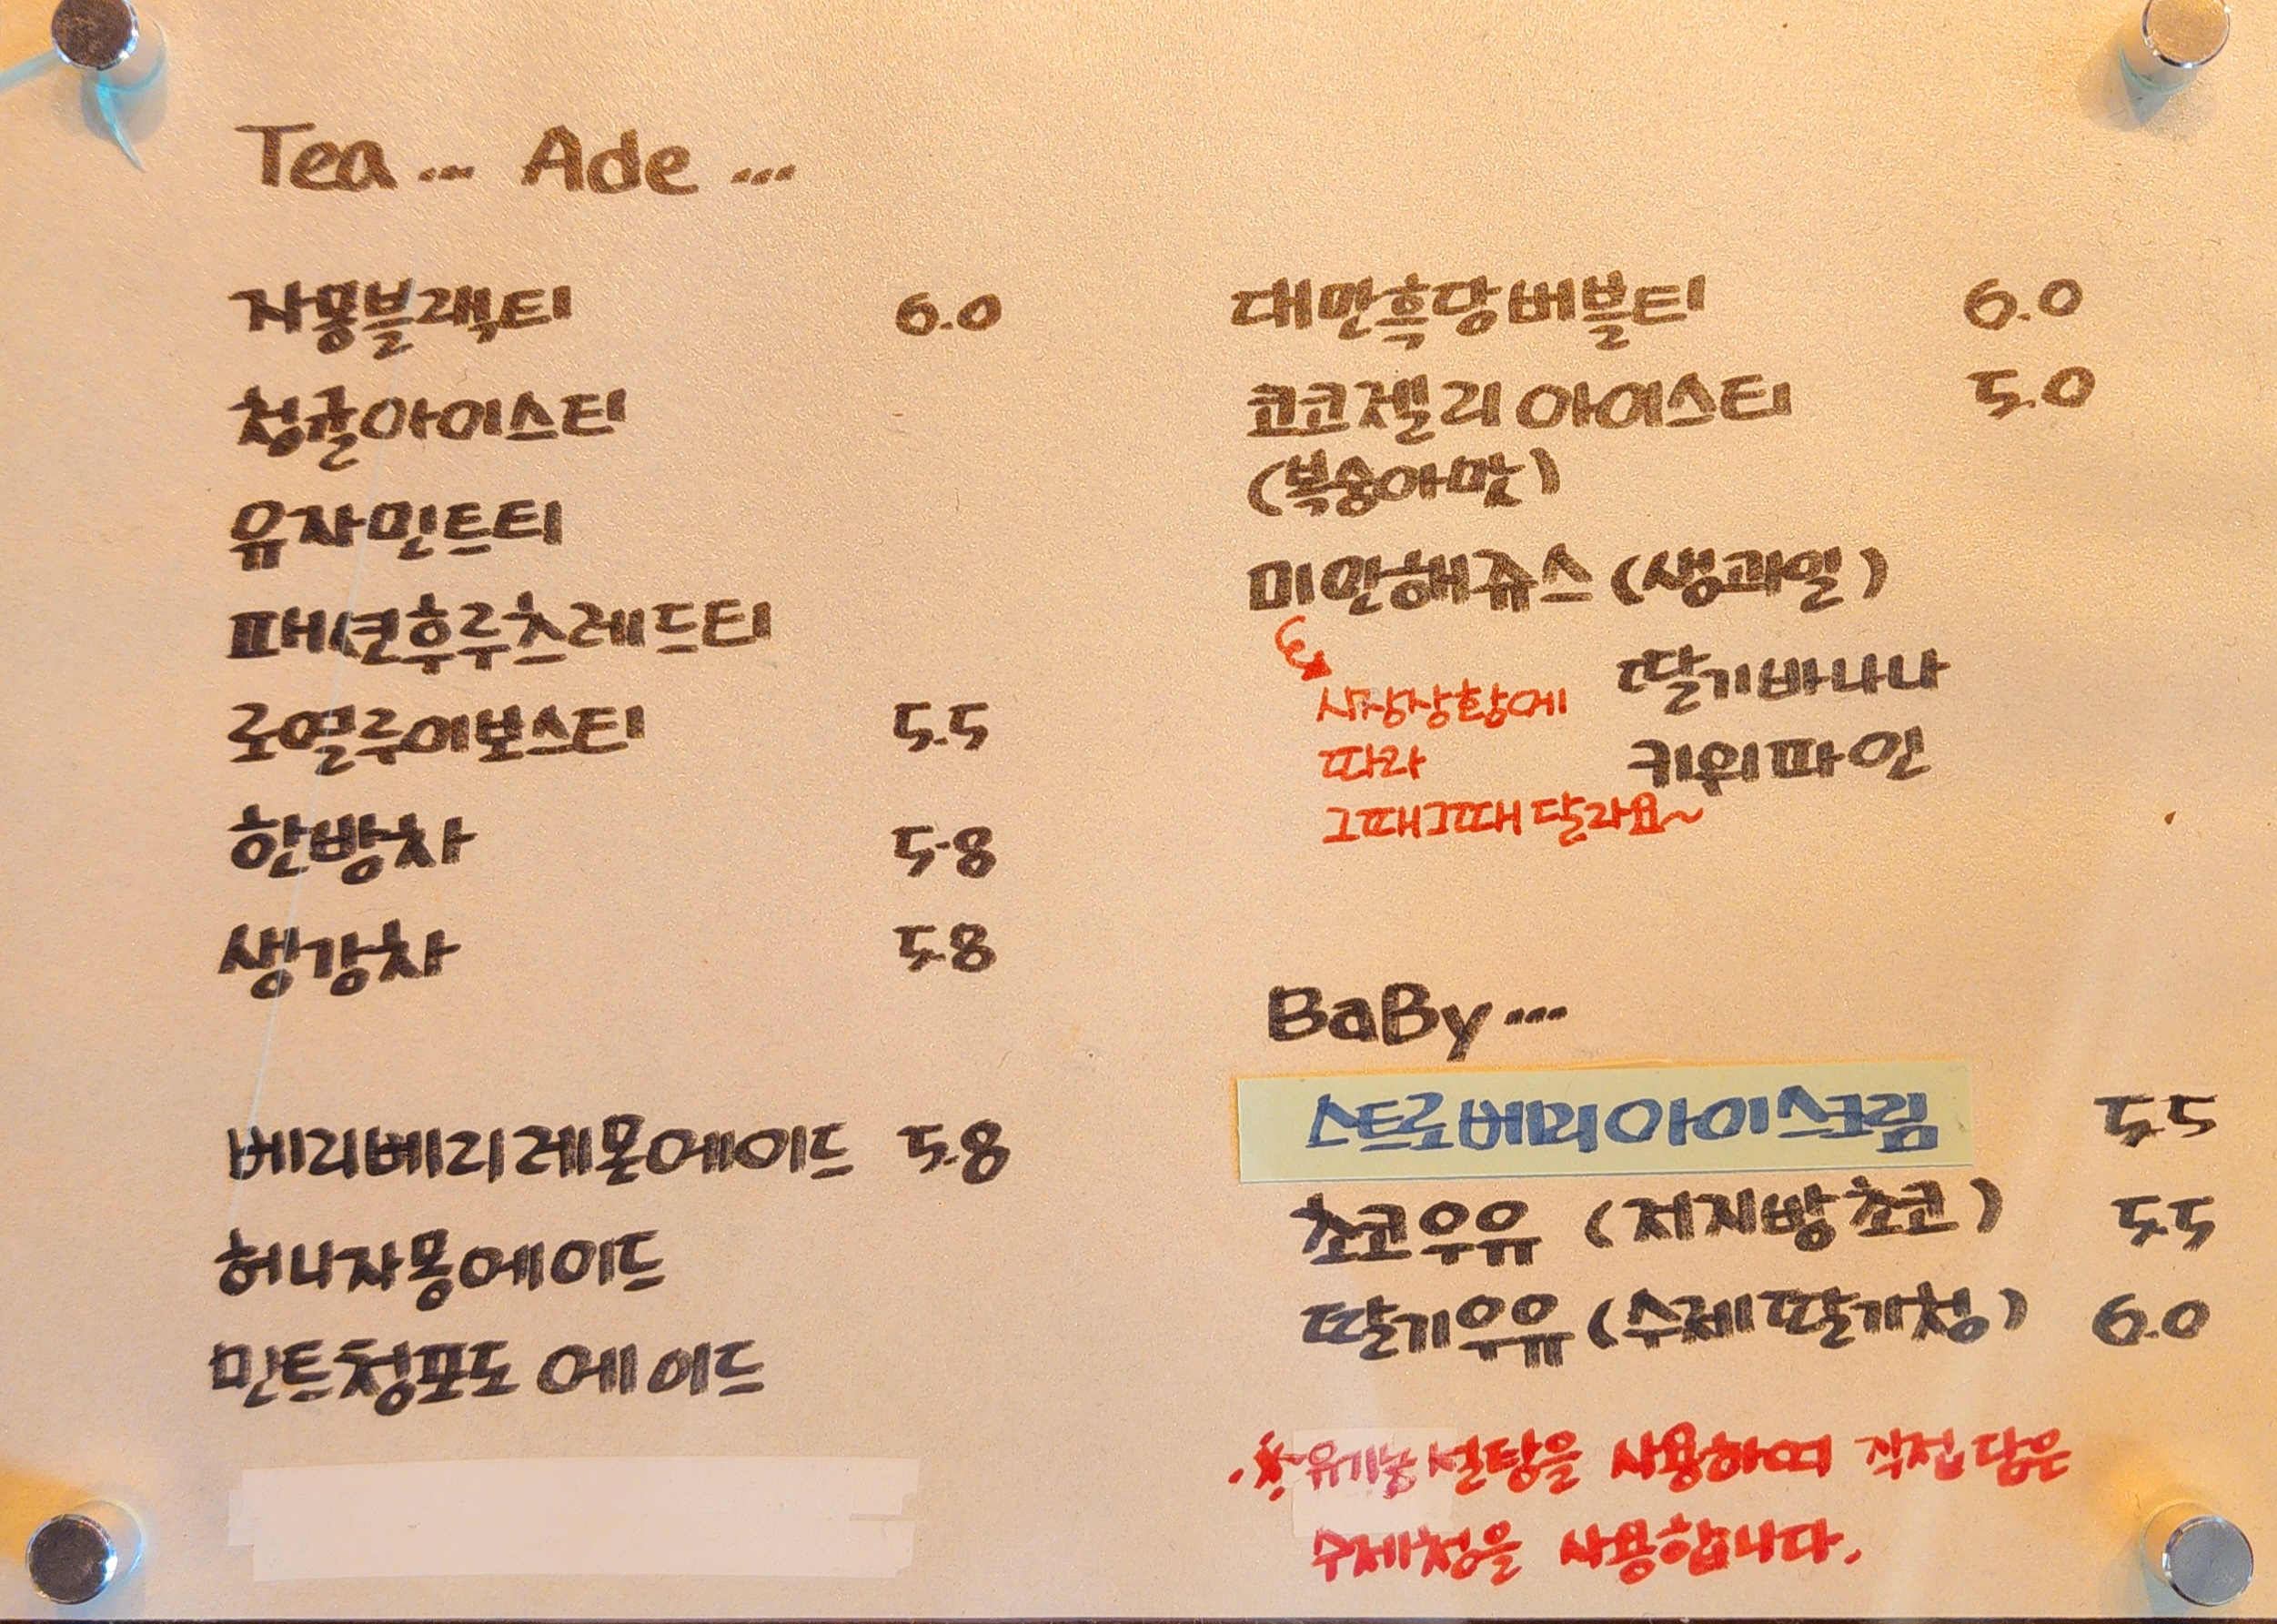 Tea... Ade...
자몽블랙티 6.0
청귤아이스티
유자민트티
패션후루츠레드티
로얄루이보스티 5.5
한방차 5.8
생강차 5.8
베리베리레몬에이드 5.8
허니자몽에이드
민트청포도 에이드
대만흑당버블티 6.0
코코젤리 아이스티 5.0
(복숭아맛)
미안해쥬스 (생과일)
시장상황에
따라
그때그때 달라요~
딸기바나나
키위파인
BaBy...
스트로베리아이스크림 5.5
초코우유 (저지방초코) 5.5
딸기우유 (수제딸기청) 6.0
※유기농 설탕을 사용하여 직접 담은
수제청을 사용합니다.